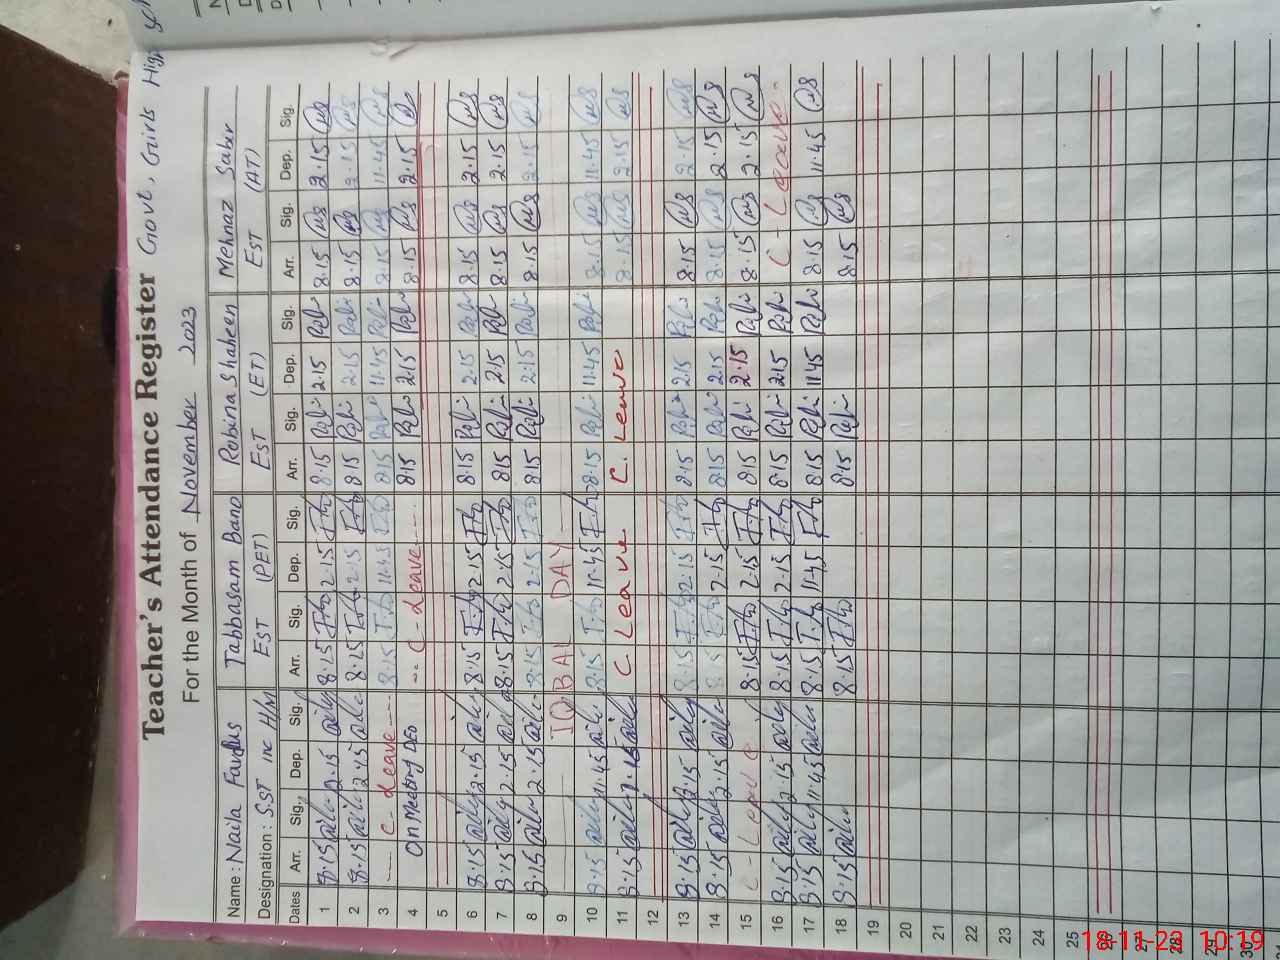 Teacher's Attendance Register Govt, Girls High Sch
For the Month of November 2023
Name : Naila Fardus Tabbasam Bano Robina Shaheen Mehnaz Sabir
Designation : SST Inc H/M EST (PET) EST (ET) EST (AT)
Dates Arr. Sig. Dep. Sig. Arr. Sig. Dep. Sig. Arr. Sig. Dep. Sig. Arr. Sig. Dep. Sig.
1 8·15 2·15 8·15 2·15 8·15 2·15 8·15 2·15
2 8·15 2·15 8·15 2·15 8·15 2·15 8·15 2·15
3 C- Leave 8·15 11·45 8·15 11·45 8·15 11·45
4 On Meeting DEO C- Leave 8·15 2·15 8·15 2·15
5
6 8·15 2·15 8·15 2·15 8·15 2·15 8·15 2·15
7 8·15 2·15 8·15 2·15 8·15 2·15 8·15 2·15
8 8·15 2·15 8·15 2·15 8·15 2·15 8·15 2·15
9 IQBAL DAY
10 8·15 11·45 8·15 11·45 8·15 11·45 8·15 11·45
11 8·15 2·15 C. Leave C. Leave 8·15 2·15
12
13 8·15 2·15 8·15 2·15 8·15 2·15 8·15 2·15
14 8·15 2·15 8·15 2·15 8·15 2·15 8·15 2·15
15 C- Leave 8·15 2·15 8·15 2·15 8·15 2·15
16 8·15 2·15 8·15 2·15 8·15 2·15 C- Leave
17 8·15 11·45 8·15 11·45 8·15 11·45 8·15 11·45
18 8·15 8·15 8·15 8·15
19
20
21
22
23
24
25
26
27
28
29
30
18-11-23 10:19